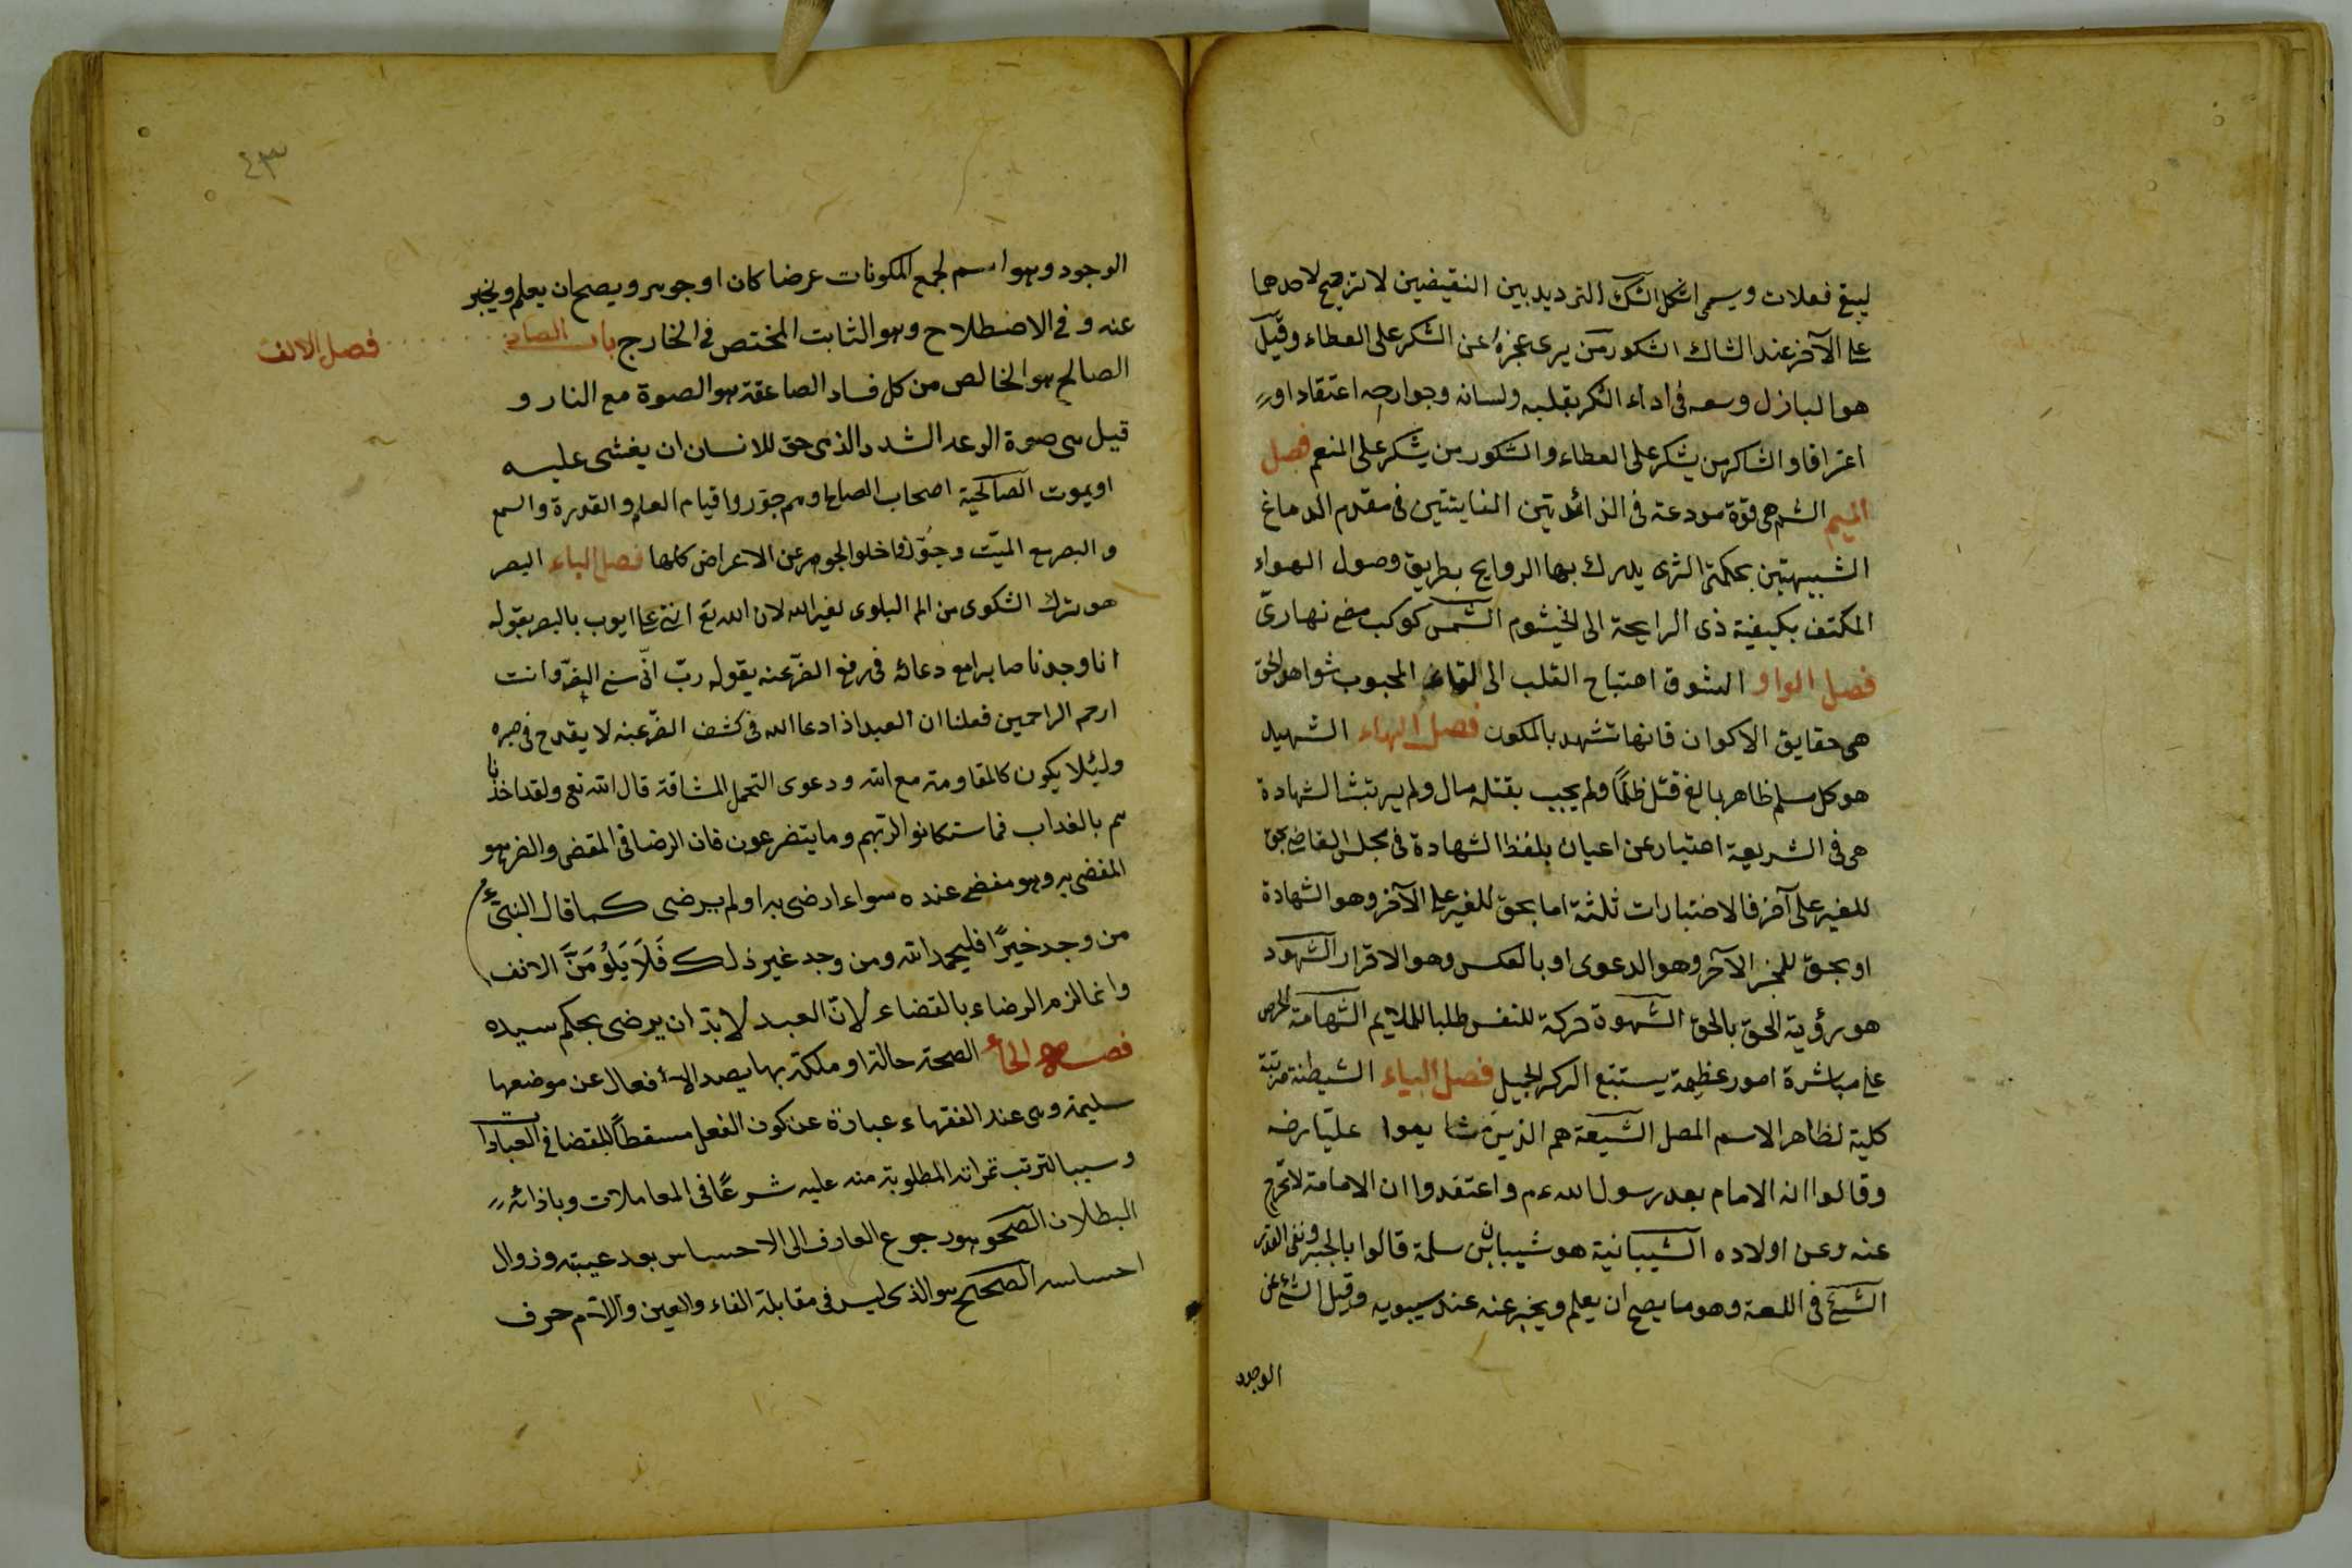 ليبغ فعلات ويسمى اشكل الشك الترديد بين النقيضين لا ترجيح لاحدهما
على الآخر عند الشاك الشكور من يرى عجزه عن الشكر على العطاء وقيل
هو البازل وسعه فى اداء الشكر بقلبه ولسانه وجوارحه اعتقادا و
اعترافا والشاكر من يشكر على العطاء والشكور من يشكر على المنعم فصل
الميم الشم هى قوة مودعة فى الزائدتين النابتتين فى مقدم الدماغ
الشبيهتين بحلمتى الثدى يدرك بها الروايح بطريق وصول الهواء
المكتف بكيفية ذى الرايحة الى الخيشوم الشمس كوكب مضئ نهارىّ
فصل الواو الشوق اهتياج القلب الى لقاء المحبوب شواهد الحق
هى حقايق الاكوان فانها تشهد بالمكون فصل الهاء الشهيد
هو كل مسلم ظاهر بالغ قتل ظلمًا ولم يجب بقتله مال ولم يرتث الشهادة
هى فى الشريعة اخبار عن اعيان بلفظ الشهادة فى مجلس القاضى بحق
للغير على آخر فالاخبارات ثلثة اما بحق للغير على الآخر وهو الشهادة
او بحق للمخبر الآخر وهو الدعوى او بالعكس وهو الاقرار الشهود
هو رؤية الحق بالحق الشهوة حركة للنفس طلبا للملايم الشهامة الحرص
على مباشرة امور عظيمة يستتبع الذكر الجميل فصل الياء الشيطنة مرتبة
كلية لظاهر الاسم المضل الشيعة هم الذين شايعوا عليّا رضه
وقالوا انه الامام بعد رسول الله عم واعتقدوا ان الامامة لا تخرج
عنه وعن اولاده الشيبانية هو شيبان بن سلمة قالوا بالجبر ونفى القدر
الشئ فى اللغة وهو ما يصح ان يعلم ويخبر عنه عند سيبويه وقيل الشئ عن
الوجود
٤٣
الوجود وهو اسم لجمع المكونات عرضا كان او جوهر ويصح ان يعلم ويخبر
عنه وفى الاصطلاح وهو الثابت المختص فى الخارج باب الصاد فصل الالف
الصالح هو الخالص من كل فساد الصاعقة هو الصوة مع النار و
قيل هى صوة الرعد الشدد الذى حق للانسان ان يغشى عليه
او يموت الصالحية اصحاب الصالح وهم جوّروا قيام العلم والقدرة والسمع
والبصر مع الميّت وجوّزوا خلو الجوهر عن الاعراض كلها فصل الباء الصبر
هو ترك الشكوى من الم البلوى لغير الله لان الله تع اثنى على ايوب بالصبر بقوله
انا وجدنا صابرا مع دعائه فى رفع الضرّ عنه بقوله ربّ انّى مسنى الضرّ وانت
ارحم الراحمين فعلنا ان العبد اذا دعا الله فى كشف الضرّ عنه لا يقدح فى صبره
ولئلا يكون كالمقاومة مع الله ودعوى التحمل المشاقة قال الله تع ولقد اخذنا
هم بالعذاب فما استكانوا لربهم وما يتضرعون فان الرضا فى المقضى والضر هو
المقضى به وهو مقضى عنده سواء ارضى به او لم يرضى كما قال النبىّ ء م
من وجد خيرًا فليحمد الله ومن وجد غير ذلك فَلَا يَلُوْمَنَّ الا نفسه
وانما لزم الرضاء بالقضاء لانّ العبد لا بدّ ان يرضى بحكم سيده
فصل الحاء الصحة حالة او ملكة بها يصدر الافعال عن موضعها
سليمة وهى عند الفقهاء عبارة عن كون الفعل مسقطاً للقضا فى العبادات
وسببا لترتب ثمراته المطلوبة منه عليه شرعًا فى المعاملات وبازائه
البطلان الصحو هو رجوع العارف الى الاحساس بعد غيبته وزوال
احساسه الصحيح هو الذى ليس فى مقابلة الفاء والعين واللام حرف